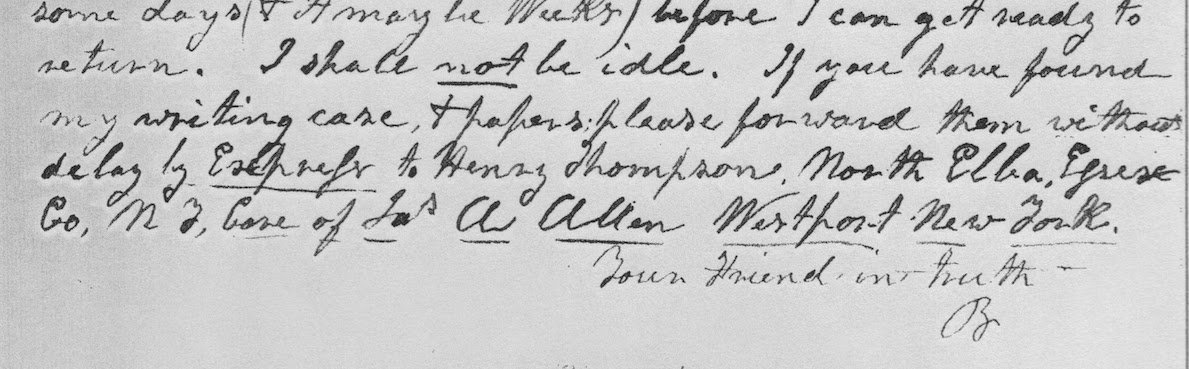 some days (& it may be Weeks) before I can get ready to
return. I shall not be idle. If you have found
my writing case, & papers; please forward them without
delay by Express to Henry Thompson, North Elba, Essex
Co, N Y, Care of Jas A Allen Westport New York.
Your Friend in truth
B